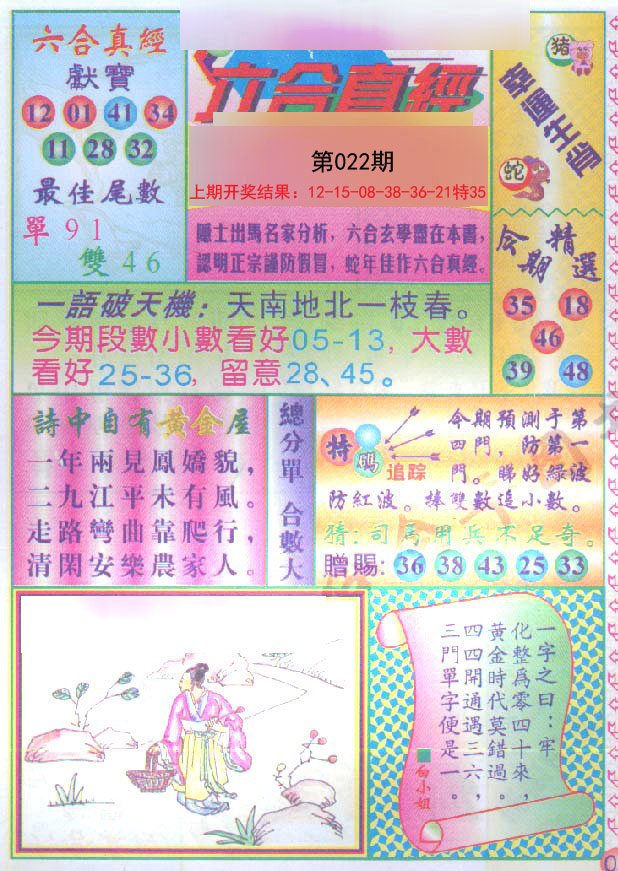 六合真經
獻寶
12 01 41 34
11 28 32
最佳尾數
單 9 1
雙 4 6
六合真經
第022期
上期开奖结果: 12-15-08-38-36-21特35
隱士出馬名家分析，六合玄學盡在本書，
認明正宗謹防假冒，蛇年佳作六合真經。
猪
蛇
今期
精選
35 18
46
39 48
一語破天機：天南地北一枝春。
今期段數小數看好05-13，大數
看好25-36，留意28、45。
詩中自有黃金屋
一年兩見鳳嬌貌，
二九江平未有風。
走路彎曲靠爬行，
清閑安樂農家人。
總分單 合數大
特碼
追踪
今期預測于第
四門，防第一
門。睇好緑波
防紅波。捧雙數追小數。
猜：司馬用兵不足奇。
贈賜：36 38 43 25 33
一字之曰：牢
化整爲零四十來，
黃金時代莫錯過。
四四開通遇三六，
三門單字便是一。
白小姐